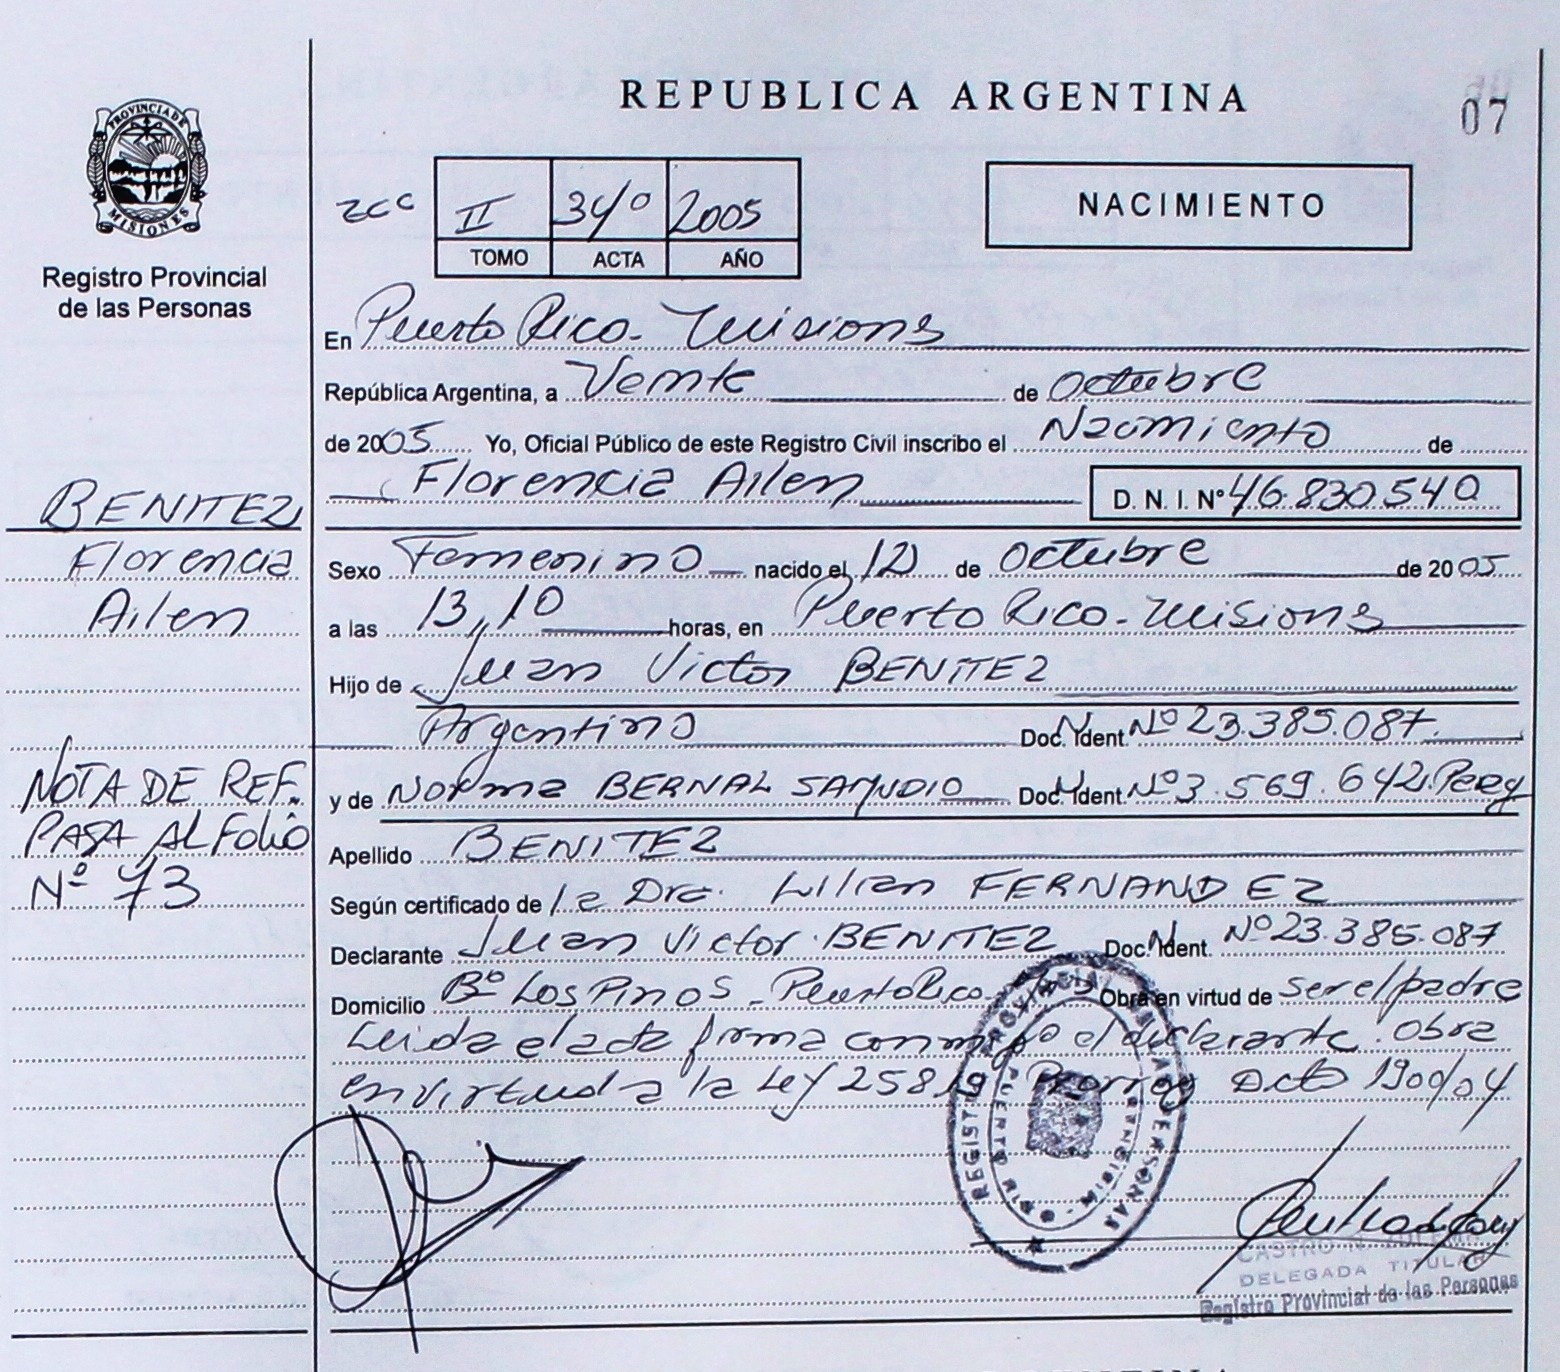 REPUBLICA ARGENTINA
07
PROVINCIA DE
MISIONES
Registro Provincial
de las Personas
II 34º 2005
TOMO ACTA AÑO
NACIMIENTO
En Puerto Rico - Misiones
República Argentina, a Veinte de Octubre
de 2005 Yo, Oficial Público de este Registro Civil inscribo el Nacimiento de
Florencia Ailen D. N. I. Nº 46.830.540
BENITEZ
Florencia
Ailen
Sexo Femenino nacido el 12 de Octubre de 2005
a las 13,10 horas, en Puerto Rico - Misiones
Hijo de Juan Victor BENITEZ
Argentino Doc. Ident. Nº 23.385.087.
y de Norma BERNAL SAMUDIO Doc. Ident. Nº 3.569.642.
NOTA DE REF.
PASA AL Folio
Nº 73
Apellido BENITEZ
Según certificado de la Dra. Lilian FERNANDEZ
Declarante Juan Victor BENITEZ Doc. Ident. Nº 23.385.087
Domicilio Bº Los Pinos - Puerto Rico Obra en virtud de ser el padre
Leida el acta firma conmigo el declarante. Obra
en virtud a la Ley 25819 Prorrog Dcto 1900/04
CASTRO N. ZULEMA
DELEGADA TITULAR
Registro Provincial de las Personas